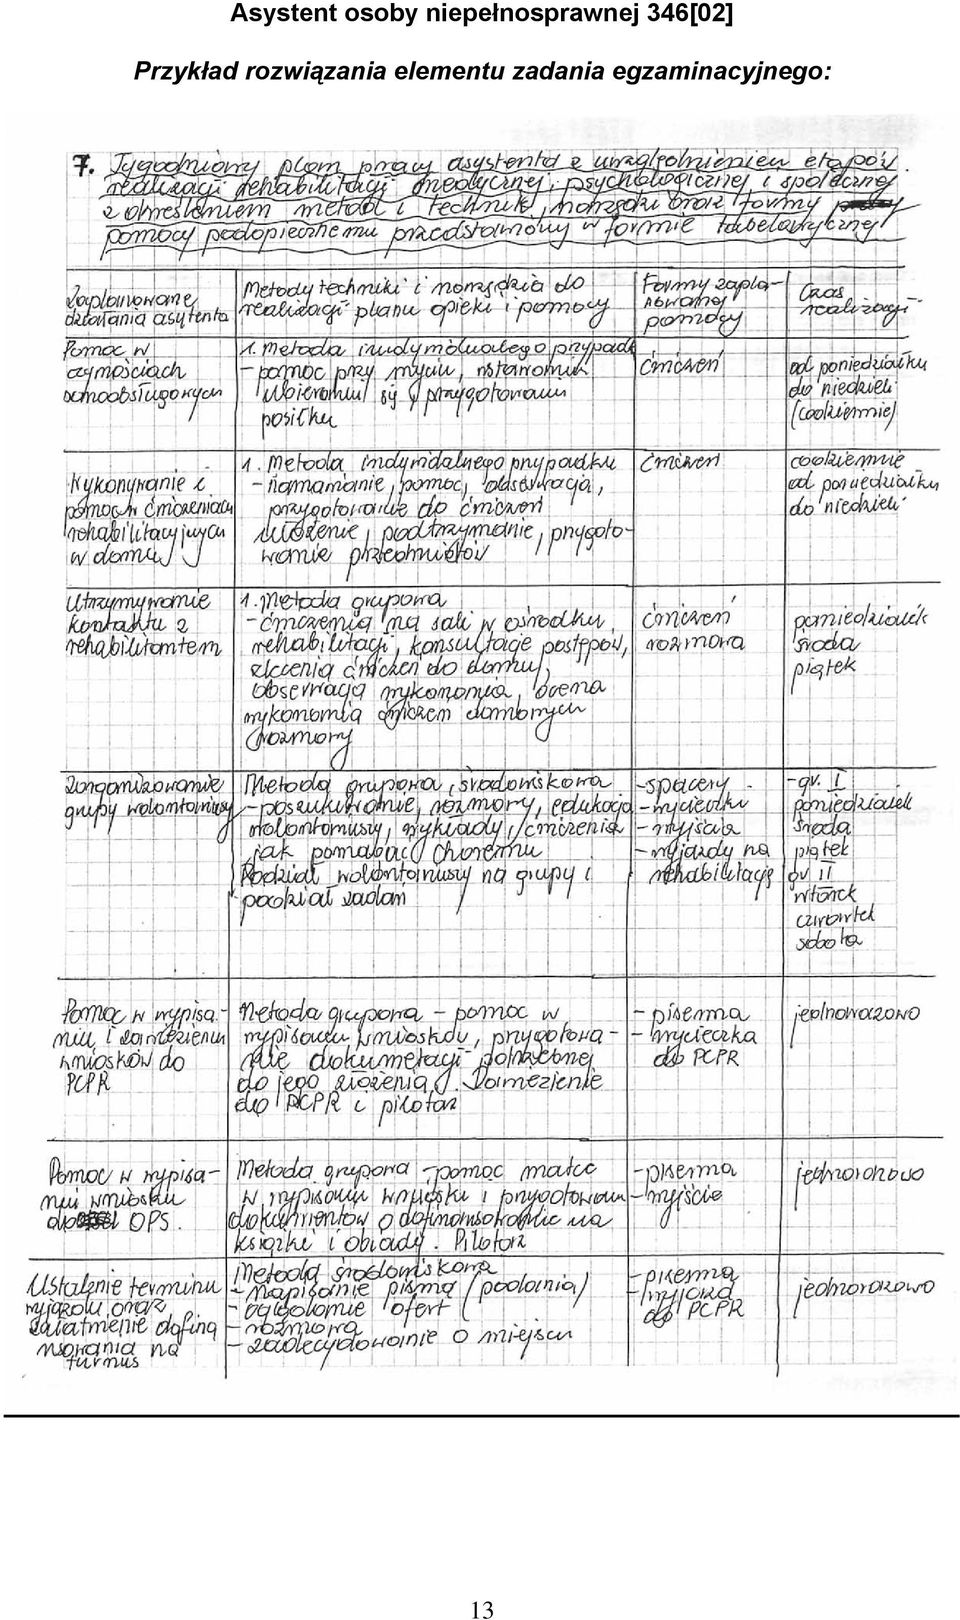 Asystent osoby niepełnosprawnej 346[02]
Przykład rozwiązania elementu zadania egzaminacyjnego:
7. Tygodniowy plan pracy asystenta z uwzględnieniem etapów
realizacji rehabilitacji medycznej, psychologicznej i społecznej
z określeniem metod i technik, narzędzi oraz formy
pomocy podopiecznemu przedstawiony w formie tabelarycznej
Zaplanowane
działania asystenta
Metody techniki i narzędzia do
realizacji planu opieki i pomocy
Formy zapla-
nowanej
pomocy
Czas
realizacji
Pomoc w
czynnościach
samoobsługowych
1. metoda indywidualnego przypadk
- pomoc przy myciu, wstawaniu
ubieraniu się, przygotowaniu
posiłku
ćwiczeń
od poniedziałku
do niedzieli
(codziennie)
Wykonywanie i
pomoc w ćwiczeniach
rehabilitacyjnych
w domu
1. Metoda indywidalnego przypadku
- namawianie, pomoc, obserwacja,
przygotowanie do ćwiczeń
ułożenie, podtrzymanie, przygoto-
wanie przedmiotów
ćwiczeń
codziennie
od poniedziałku
do niedzieli
Utrzymywanie
kontaktu z
rehabilitantem
1. metoda grupowa
- ćwiczenia na sali w ośrodku
rehabilitacji, konsultacje postępów,
zlecenia ćwiczeń do domu,
obserwacja wykonania, ocena
wykonania ćwiczeń domowych
rozmowy
ćwiczeń
rozmowa
poniedziałek
środa
piątek
Zorganizowanie
grupy wolontariuszy
Metoda grupowa, środowiskowa
- poszukiwanie, rozmowy, edukacja
wolontariuszy, wykłady, ćwiczenia
jak pomagać choremu
Podział wolontariuszy na grupy i
podział zadań
- spacery
- wycieczki
- wyjścia
- wyjazdy na
rehabilitację
- gr. I
poniedziałek
środa
piątek
gr II
wtorek
czwartek
sobota
Pomoc w wypisa-
niu i zaniesieniu
wniosków do
PCPR
Metoda grupowa - pomoc w
wypisaniu wniosków, przygotowa-
nie dokumetacji potrzebnej
do jego złożenia. Zaniesienie
do PCPR i pilotaż
- pisemna
- wycieczka
do PCPR
jednorazowo
Pomoc w wypisa-
niu wniosku
do OPS.
Metoda grupowa - pomoc matce
w wypisaniu wniosku i przygotowaniu
dokumentów o dofinansowanie na
książki i obiady. Pilotaż
- pisemna
- wyjście
jednorazowo
Ustalenie terminu
wyjazdu oraz
załatwienie dofina
nsowania na
turnus
Metoda środowiskowa
- napisanie pisma (podania)
- oglądanie ofert
- rozmowa
- zadecydowanie o miejscu
- pisemna
- wyjazd
do PCPR
jednorazowo
13